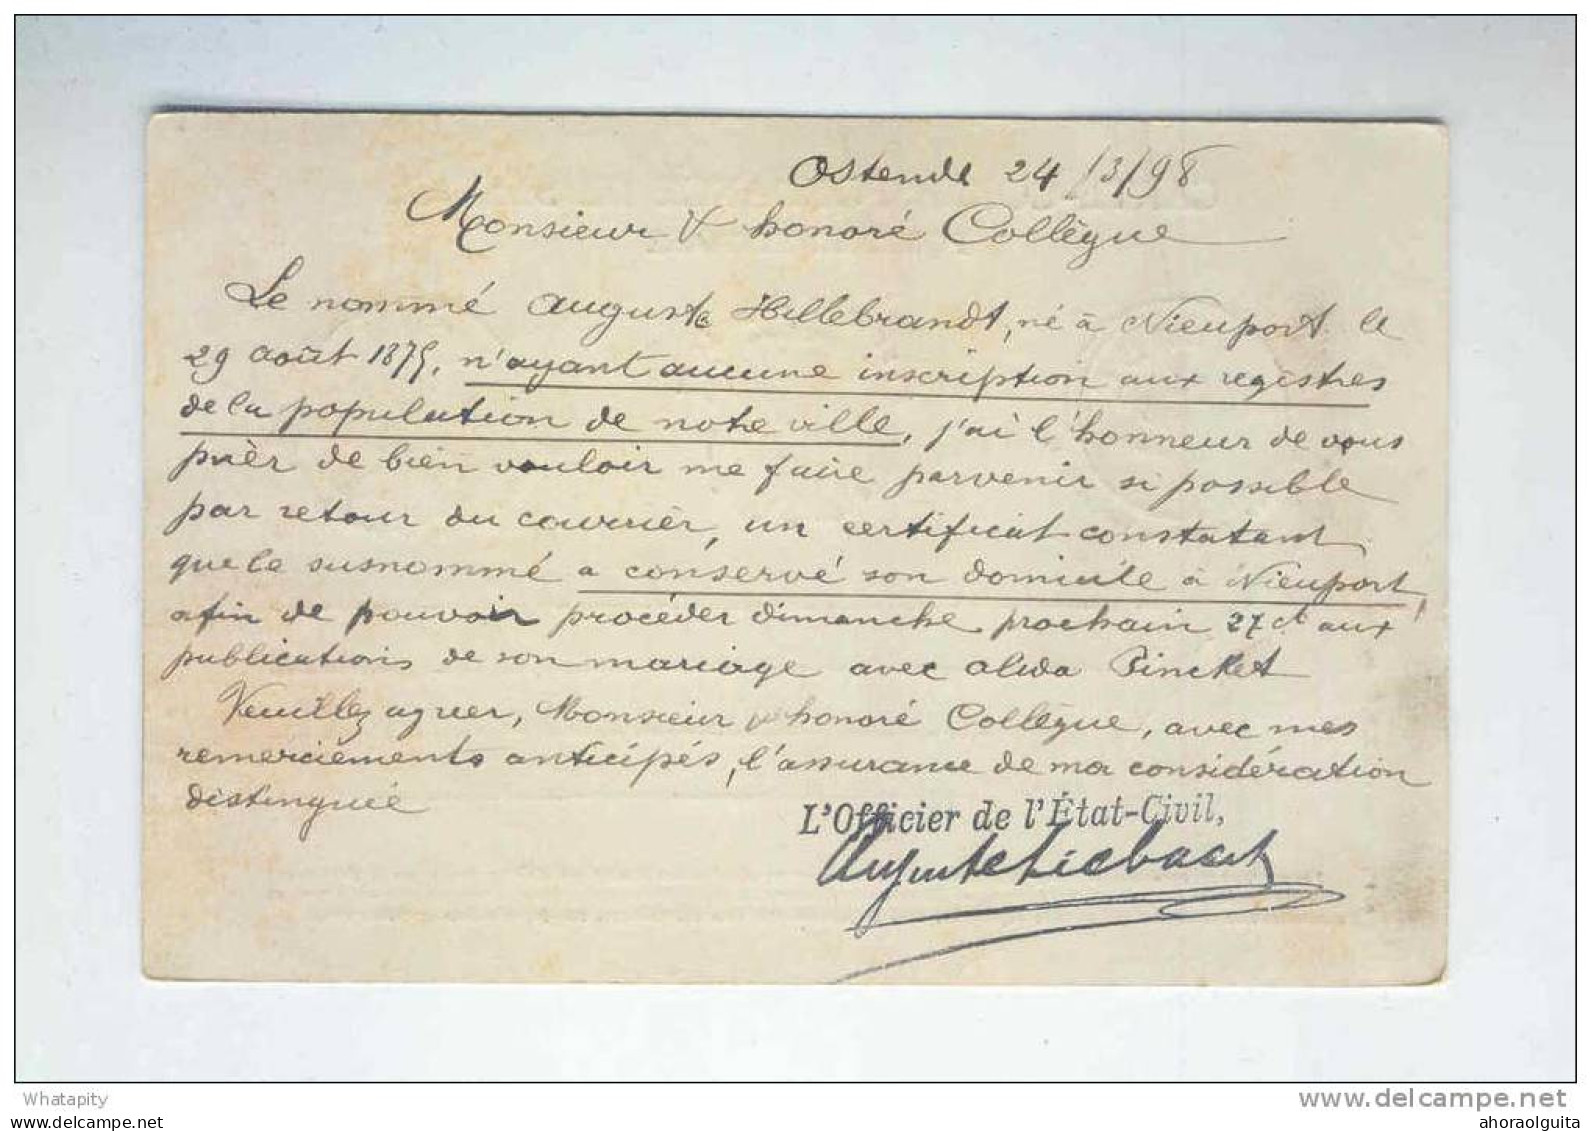 Ostende 24/3/98
Monsieur & honoré Collègue
Le nommé Auguste Hillebrandt, né à Nieuport le
29 août 1875, n'ayant aucune inscription aux registres
de la population de notre ville, j'ai l'honneur de vous
prier de bien vouloir me faire parvenir si possible
par retour du courrier, un certificat constatant
que le susnommé a conservé son domicile à Nieuport,
afin de pouvoir procéder dimanche prochain 27 ct aux
publications de son mariage avec Pincket
Veuillez agréer, Monsieur & honoré Collègue, avec mes
remerciements anticipés, l'assurance de ma considération
distinguée
L'Officier de l'État-Civil,
Auguste Liebaert
Whatapity
www.delcampe.net
ahoraolguita